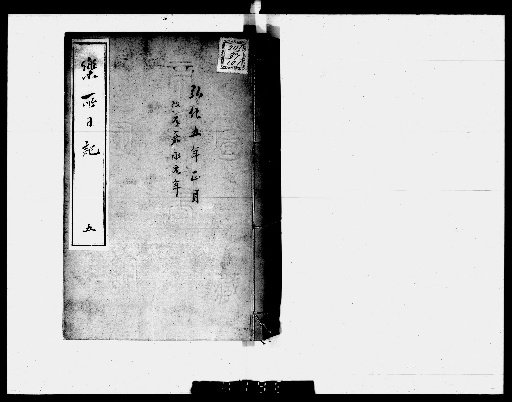 弘化五年正月
改元嘉永元年
樂所日記
五